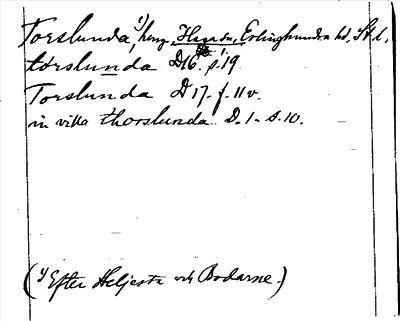 Torslunda,¹) hemg. Husby, Erlinghundra hd, St. l.
törslunda D16. f. 19.
Torslunda D 17. f. 11 v.
in villa thorslunda D. 1. s. 10.
(¹) Efter Heljesta och Bodarne.)